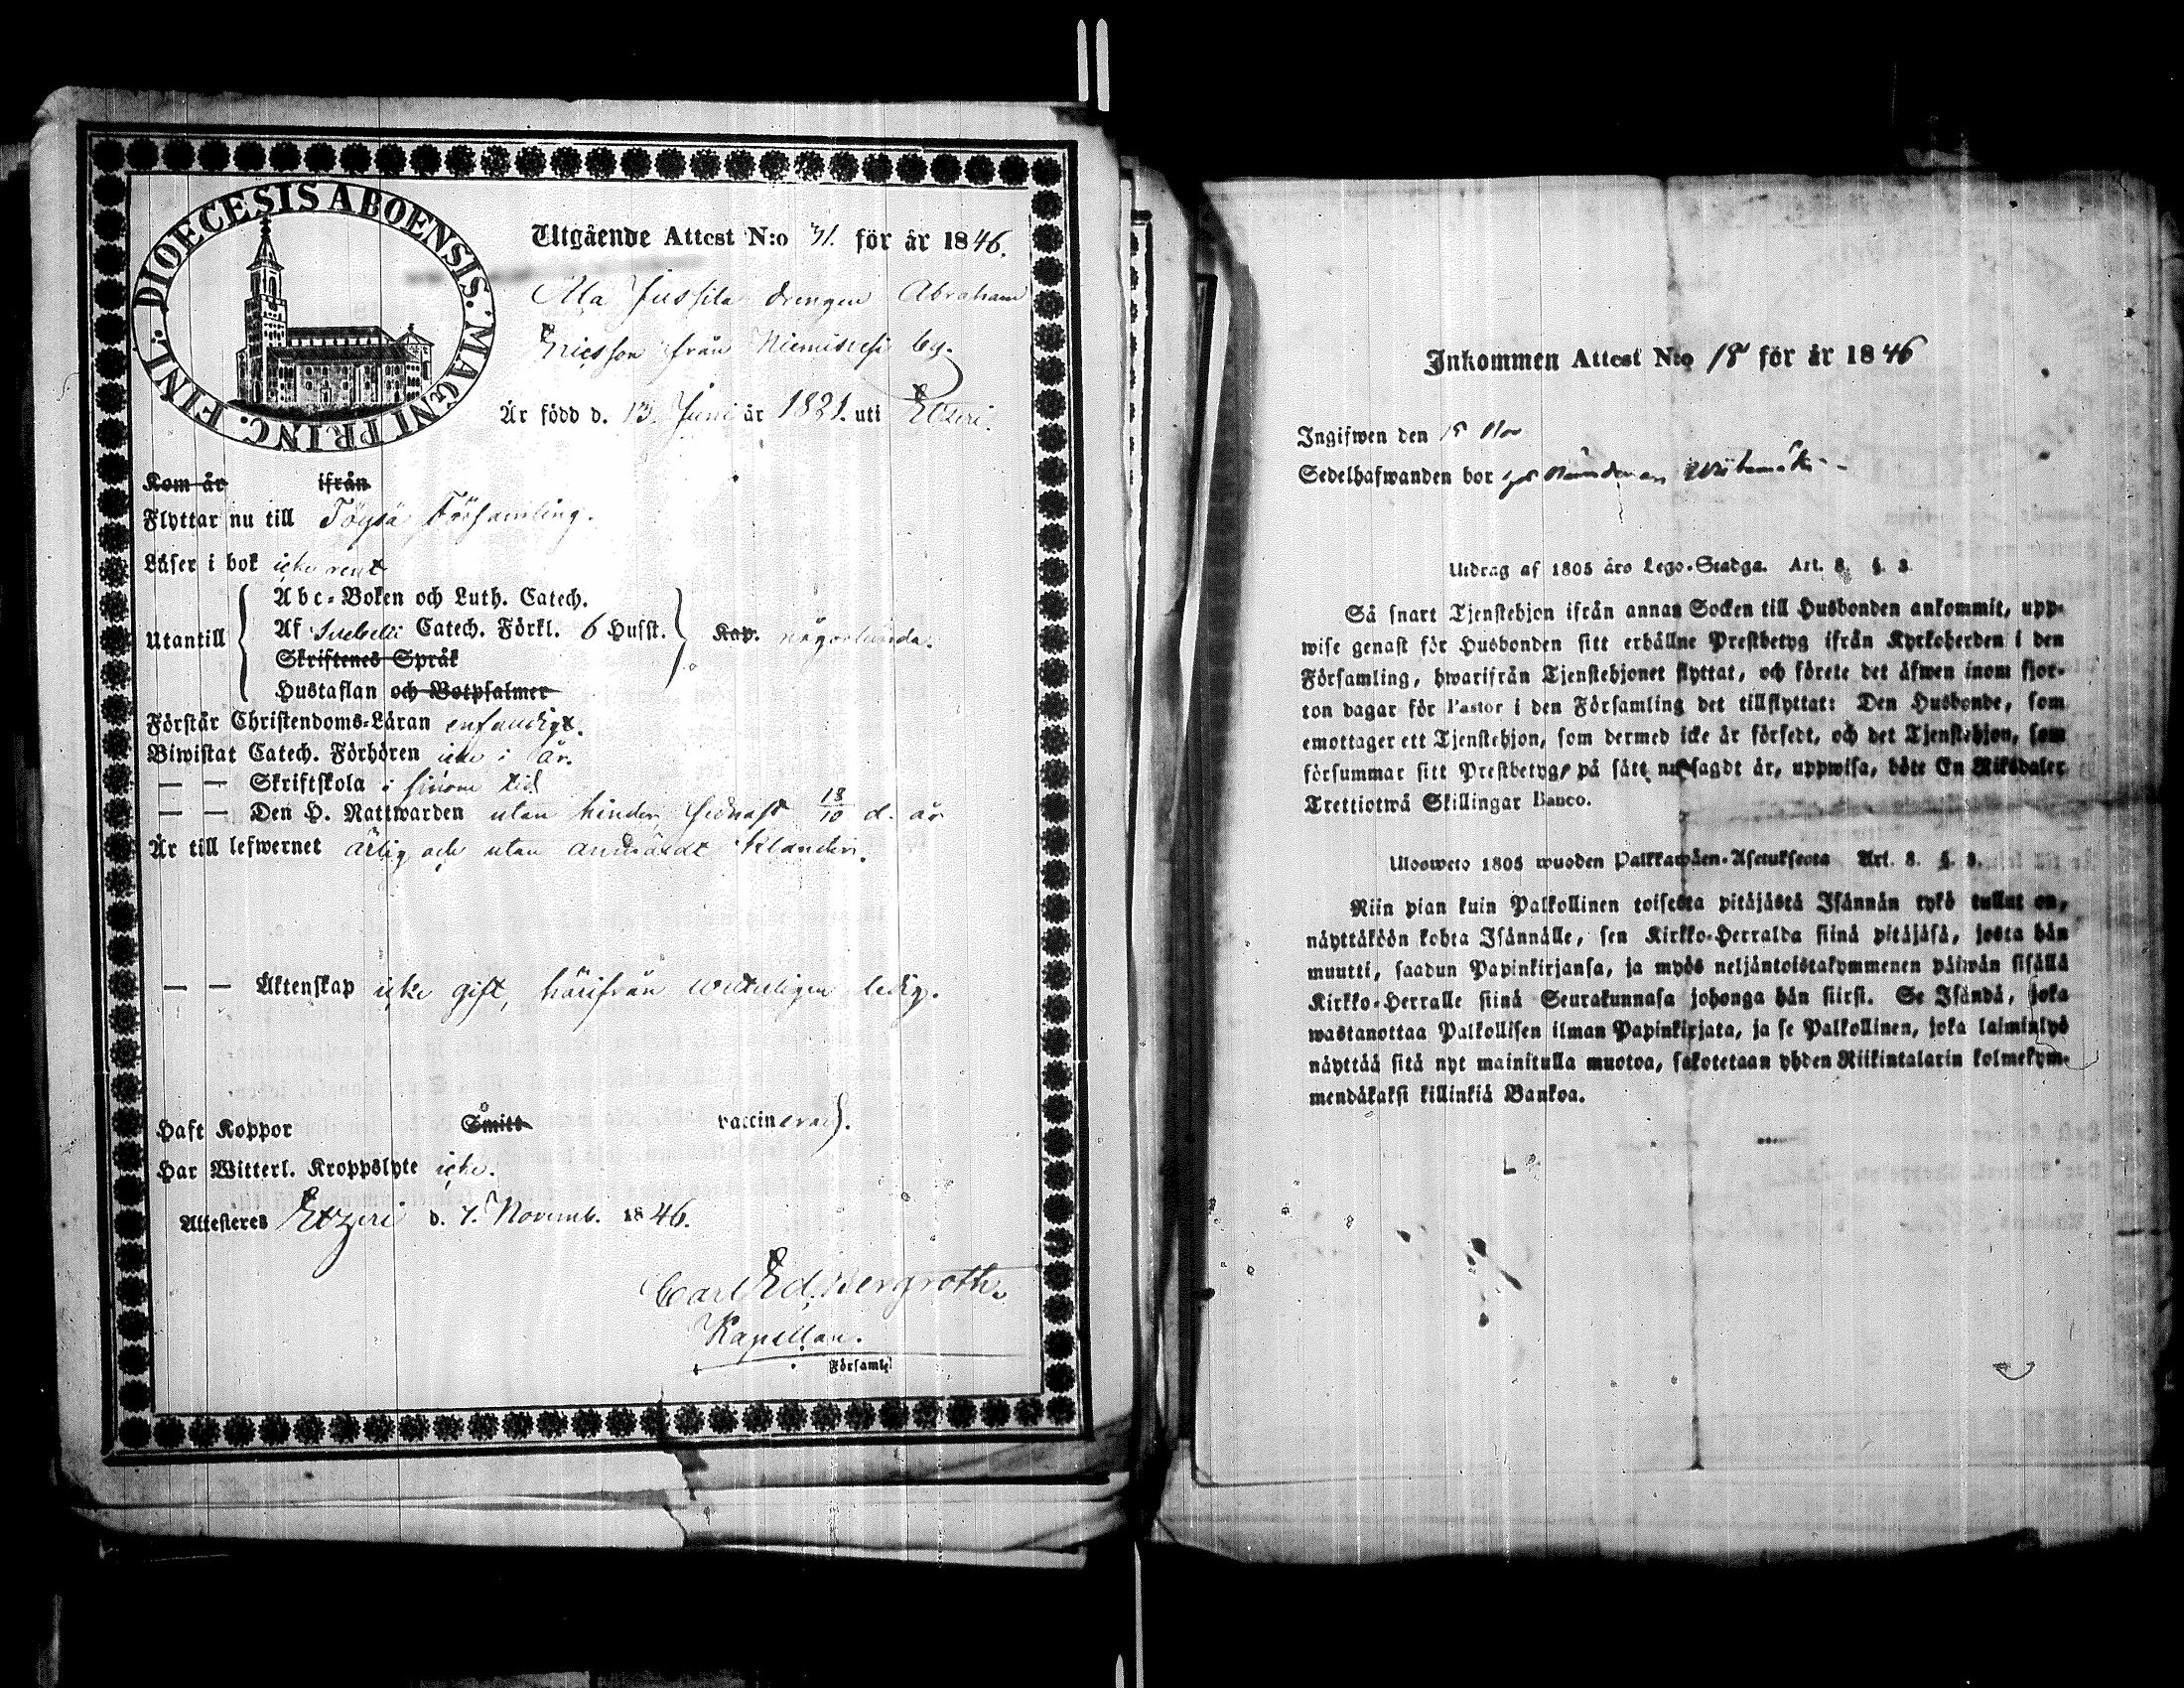 DIOECESIS ABOENSIS. MAGNI PRINC. FINL.
Utgående Attest N:o 31. för år 1846.
Ala Jussila drengen Abraham
Ericsson från Niemisvesi by.
Är född d. 13. Juni år 1821. uti Etzeri.
Kom år ifrån
Flyttar nu till Töysä Församling.
Läser i bok icke rent
Utantill
Abc-Boken och Luth. Catech.
Af Svebelii Catech. Förkl. 6 Hufst. Kap. någorlunda.
Skriftenes Språk
Hustaflan och Botpsalmer
Förstår Christendoms-Läran enfaldigt.
Biwistat Catech. Förhören icke i år.
— — Skriftskola i sinom tid
— — Den H. Nattwarden utan hinder, sednast 18/10 d. år
Är till lefwernet ärlig och utan anmäldt klander.
— — Äktenskap icke gift, härifrån witterligen ledig.
Haft Koppor Smitt vaccinerad.
Har Witterl. Kroppslyte icke.
Attesteres Etzeri d. 7. Novemb. 1846.
Carl Ed. Bergroth.
Kapellan.
Församl.
Inkommen Attest N:o 18 för år 1846
Ingifwen den 18 Nov
Sedelhafwanden bor
Utdrag af 1805 års Lego-Stadga. Art. 8. §. 3.
Så snart Tjenstehjon ifrån annan Socken till Husbonden ankommit, upp-
wise genast för Husbonden sitt erhållne Prestbetyg ifrån Kyrkoherden i den
Församling, hwarifrån Tjenstehjonet flyttat, och förete det äfwen inom fjor-
ton dagar för Pastor i den Församling det tillflyttat: Den Husbonde, som
emottager ett Tjenstehjon, som dermed icke är försedt, och det Tjenstehjon, som
försummar sitt Prestbetyg, på sätt nu sagdt är, uppwisa, böte En Riksdaler
Trettiotwå Skillingar Banco.
Ulosweto 1805 wuoden Palkkawäen-Asetuksesta Art. 8. §. 3.
Niin pian kuin Palkollinen toisesta pitäjästä Isännän tykö tullut on,
näyttäköön kohta Isännälle, sen Kirkko-Herralda siinä pitäjäsä, josta hän
muutti, saadun Papinkirjansa, ja myös neljäntoistakymmenen päiwän sisällä
Kirkko-Herralle siinä Seurakunnasa johonga hän siirsi. Se Isändä, joka
wastanottaa Palkollisen ilman Papinkirjata, ja se Palkollinen, joka laiminlyö
näyttää sitä nyt mainitulla muotoa, sakotetaan yhden Riikintalarin kolmekym-
mendäkaksi killinkiä Bankoa.